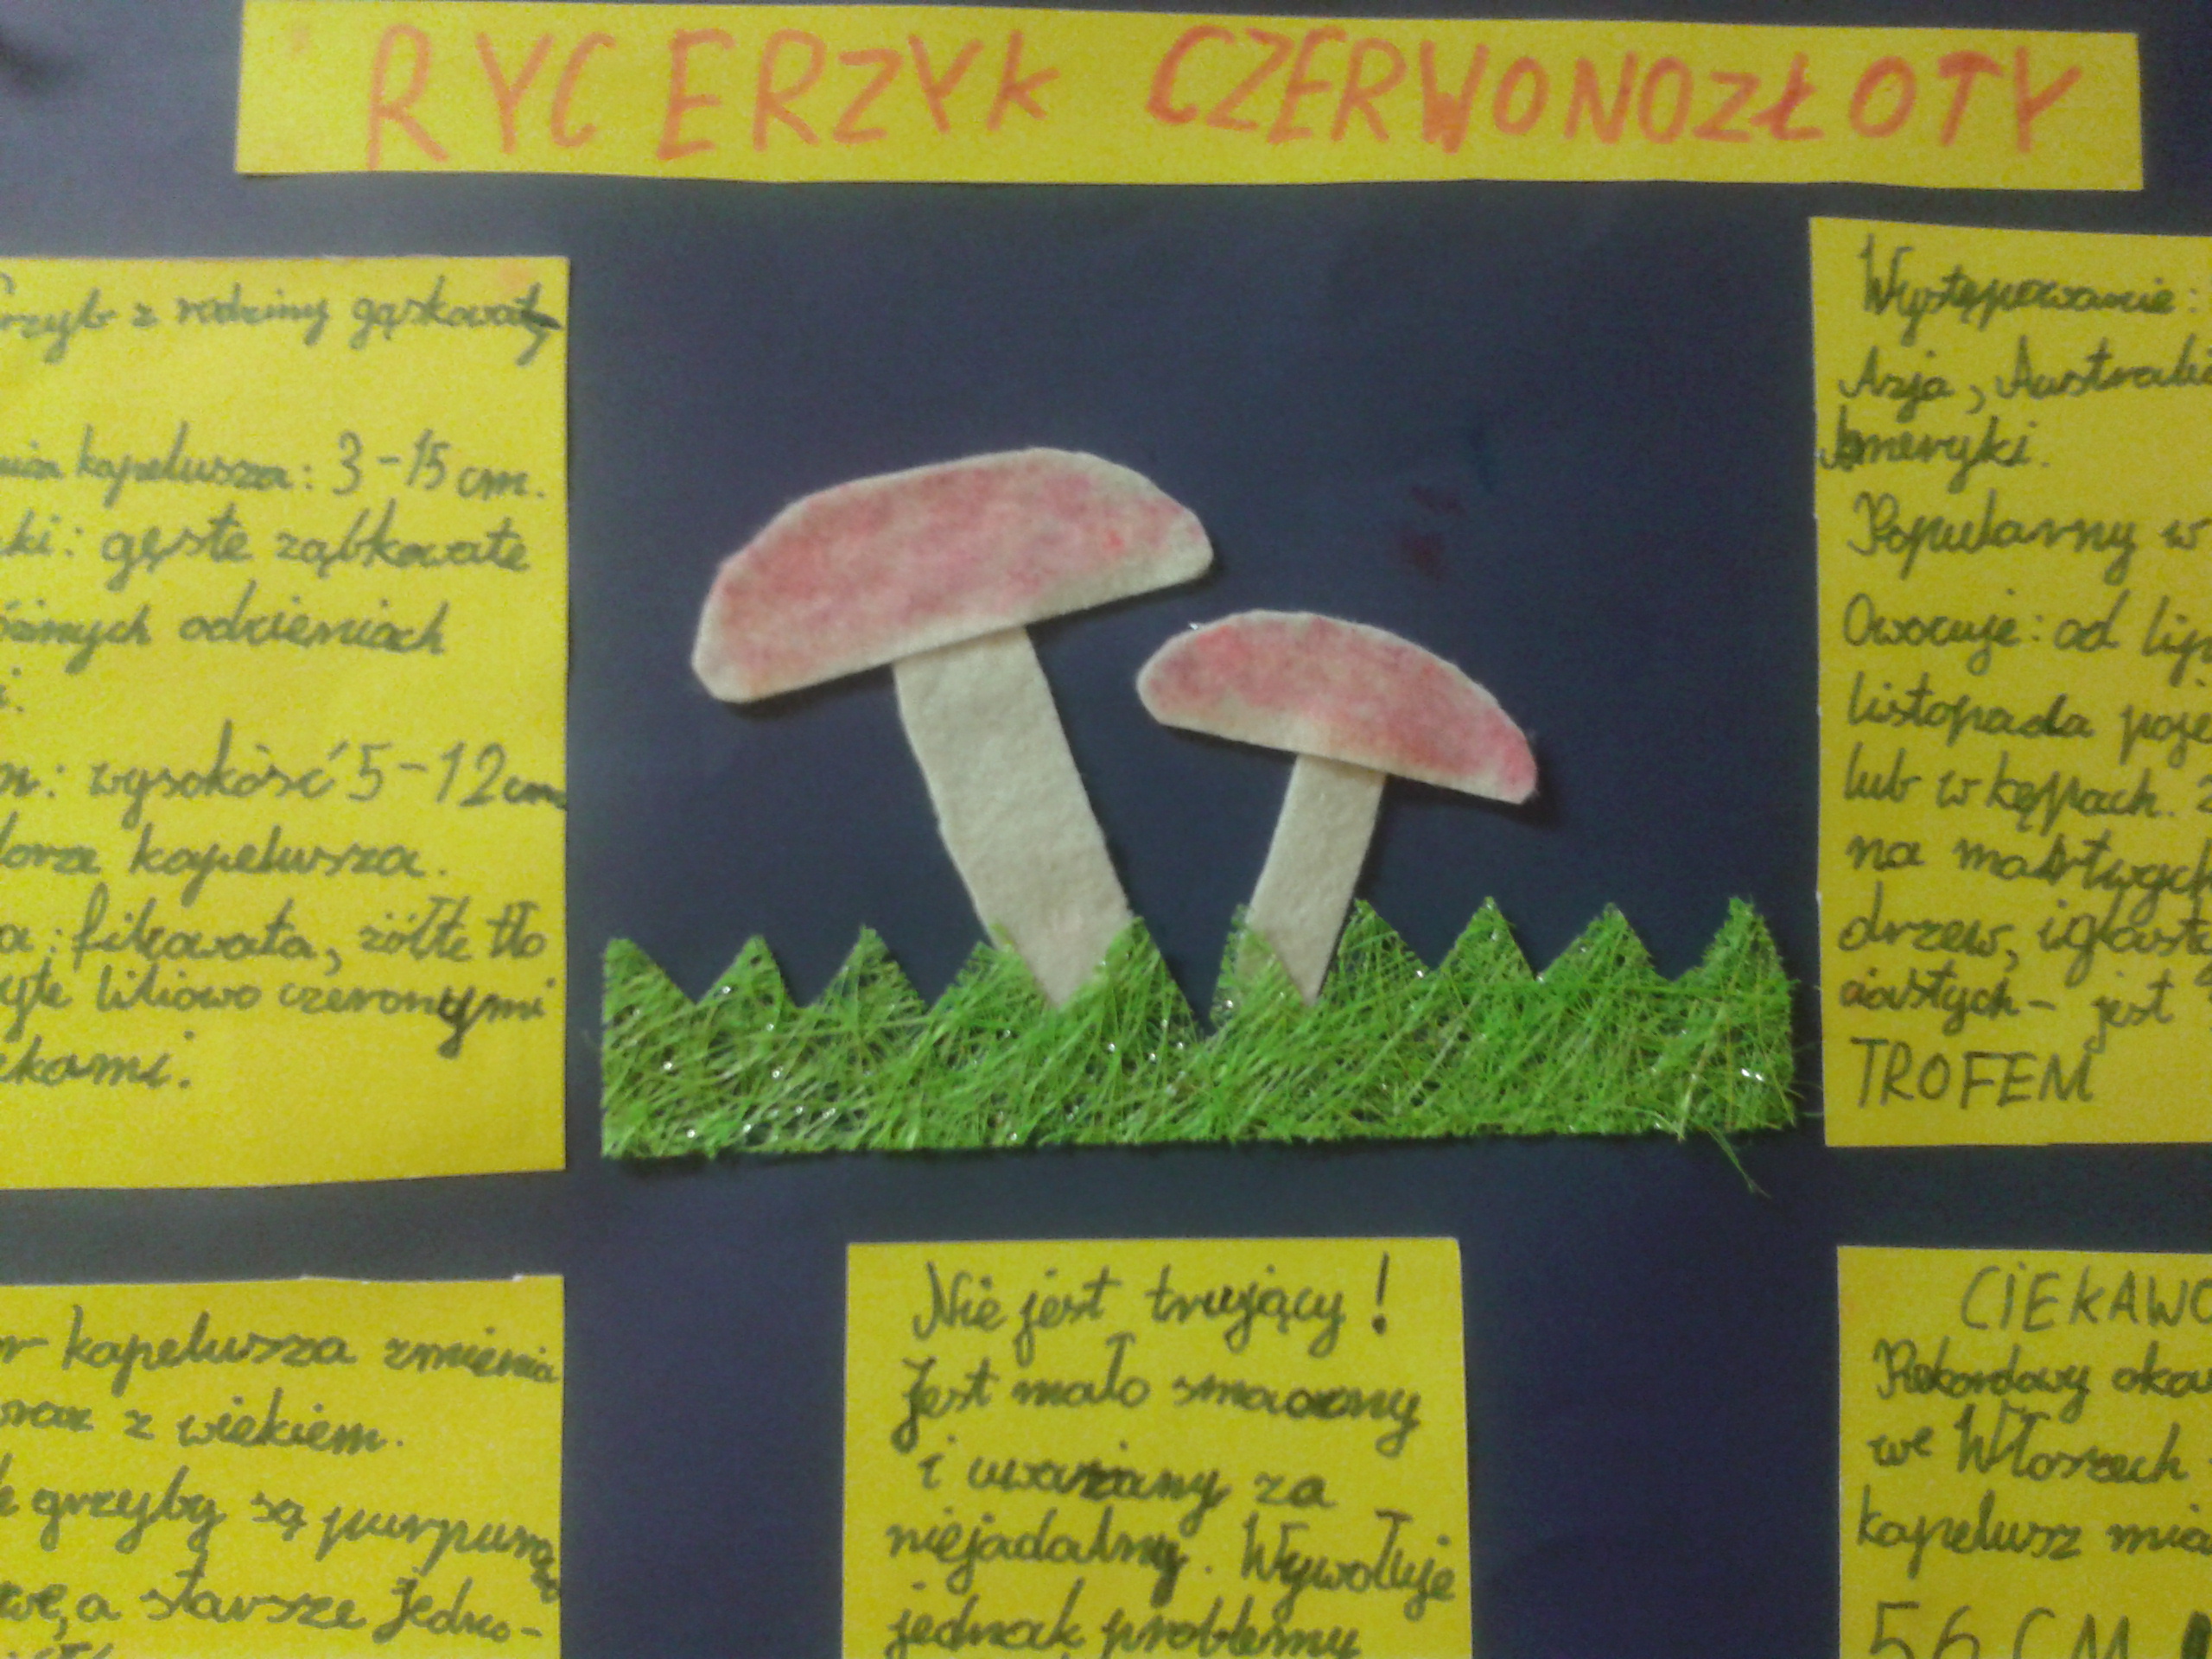 RYCERZYK CZERWONOZŁOTY
rzyb z rodziny gąskowaty
kapelusza: 3-15 cm.
ki: gęste ząbkowate
óżnych odcieniach
i.
n: wysokość 5-12 cm
kapelusza.
a: filcowata, żółte tło
yte liliowo czerwonymi
kami.
Występowanie:
Azja, Australia
Ameryki.
Popularny w
Owocuje: od lip
listopada poje
lub w kępach.
na martwych
drzew, iglast
ciastych- jest
TROFEM
r kapelusza zmienia
wraz z wiekiem.
grzyby są purpuro
we, a starsze jedno-
Nie jest trujący!
Jest mało smaczny
i uważany za
niejadalny. Wywołuje
jednak problemy
CIEKAWO
Rekordowy oka
we Włoszech
kapelusz mia
56 CM